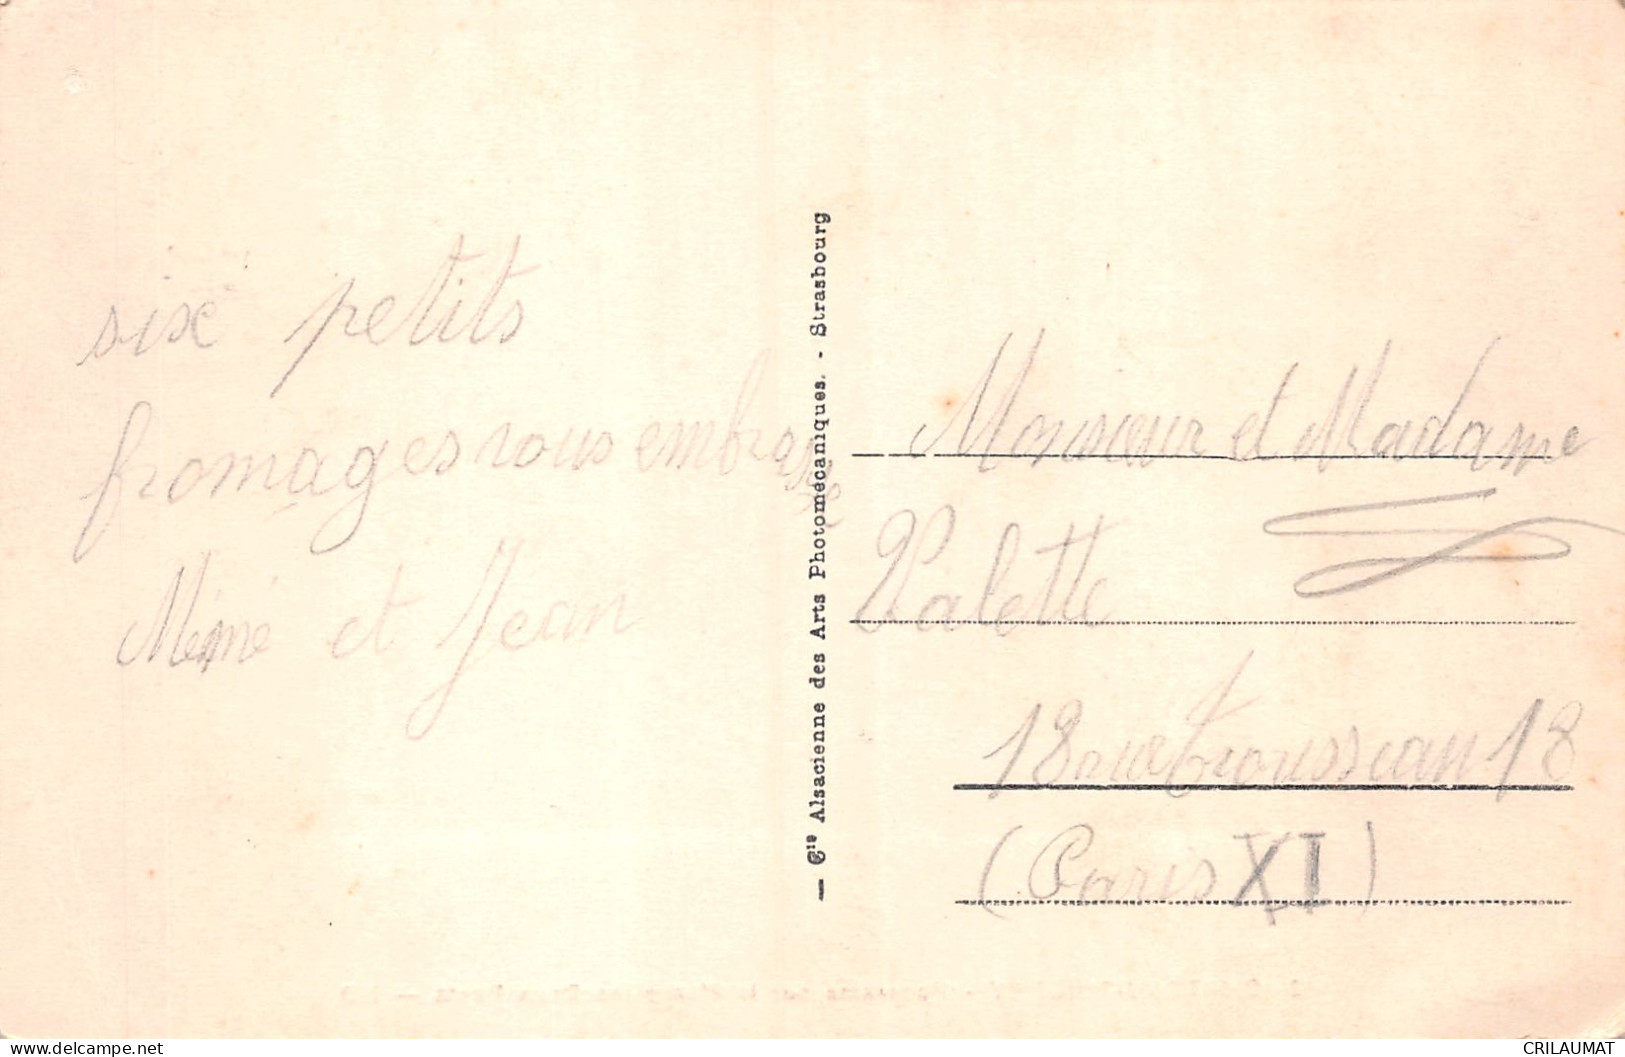 six petits
fromages vous embrasse
Mémé et Jean
— Cie Alsacienne des Arts Photomécaniques. - Strasbourg
Monsieur et Madame
Palette
18 rue trousseau 18
(Paris XI)
delcampe.net
CRILAUMAT